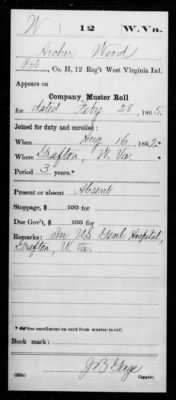 W | 12 | W. Va.
Archer Wood
Pvt., Co. H, 12 Reg't West Virginia Inf.
Appears on
Company Muster Roll
for dated Feby 28, 1865.
Joined for duty and enrolled:
When Aug 16, 1862
Where Grafton, W. Va.
Period 3 years.*
Present or absent Absent
Stoppage, $ 100 for
Due Gov't, $ 100 for
Remarks: In U.S. Genl Hospital,
Grafton, W. Va.
* See enrollment on card from muster-in roll.
Book mark:
(358c) Copyist.